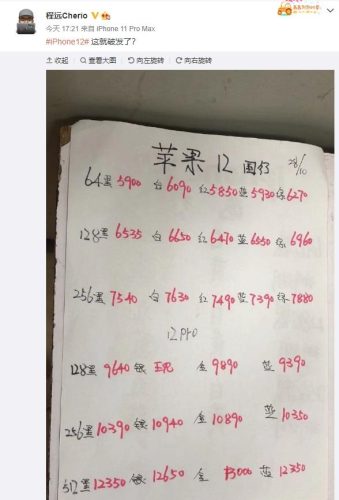 程远Cherio
今天 17:21 来自 iPhone 11 Pro Max
#iPhone12# 这就破发了?
收起 查看大图 向左旋转 向右旋转
苹果12 国行 28/10
64黑5900 白6090 红5850 蓝5930 绿6270
128黑6535 白6650 红6470 蓝6550 绿6960
256黑7540 白7630 红7490 蓝7390 绿7880
12pro
128黑9640 银 金9890 蓝9390
256黑10390 银10940 金10890 蓝10350
512黑12350 银12650 金13000 蓝12350